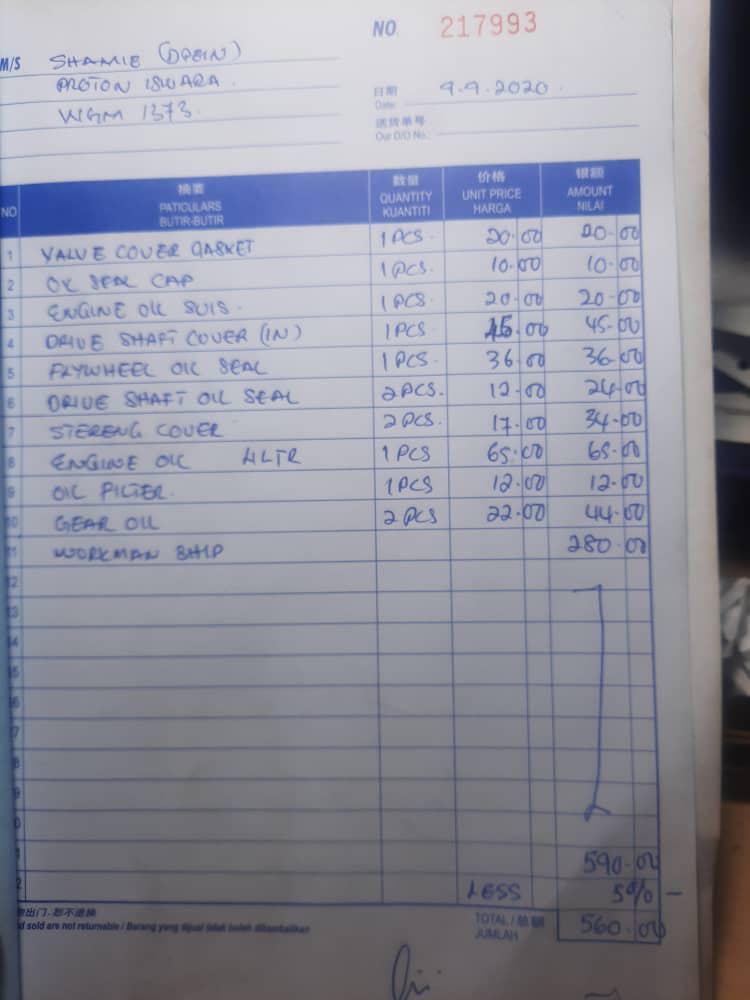 NO. 217993
M/S SHAMIE (DREIN)
PROTON ISWARA.
WGM 1373.
日期 Date: 9.9.2020.
送货单号 Our D/O No.:
NO 摘要 PATICULARS BUTIR-BUTIR 数量 QUANTITY KUANTITI 价格 UNIT PRICE HARGA 银额 AMOUNT NILAI
1 VALVE COVER GASKET 1 PCS. 20.00 20.00
2 OIL SEAL CAP 1 PCS. 10.00 10.00
3 ENGINE OIL SUIS. 1 PCS. 20.00 20.00
4 DRIVE SHAFT COVER (IN) 1 PCS. 45.00 45.00
5 FLYWHEEL OIL SEAL 1 PCS. 36.00 36.00
6 DRIVE SHAFT OIL SEAL 2 PCS. 12.00 24.00
7 STERENG COVER 2 PCS. 17.00 34.00
8 ENGINE OIL 4LTR 1 PCS 65.00 65.00
9 OIL FILTER. 1 PCS 12.00 12.00
10 GEAR OIL 2 PCS 22.00 44.00
11 WORKMAN SHIP 280.00
12
3
4
5
6
7
8
9
0
1 590.00
2 LESS 5% -
出门·恕不退换
d sold are not returnable / Barang yang dijual tidak boleh dikembalikan
TOTAL / 总额 JUMLAH 560.00